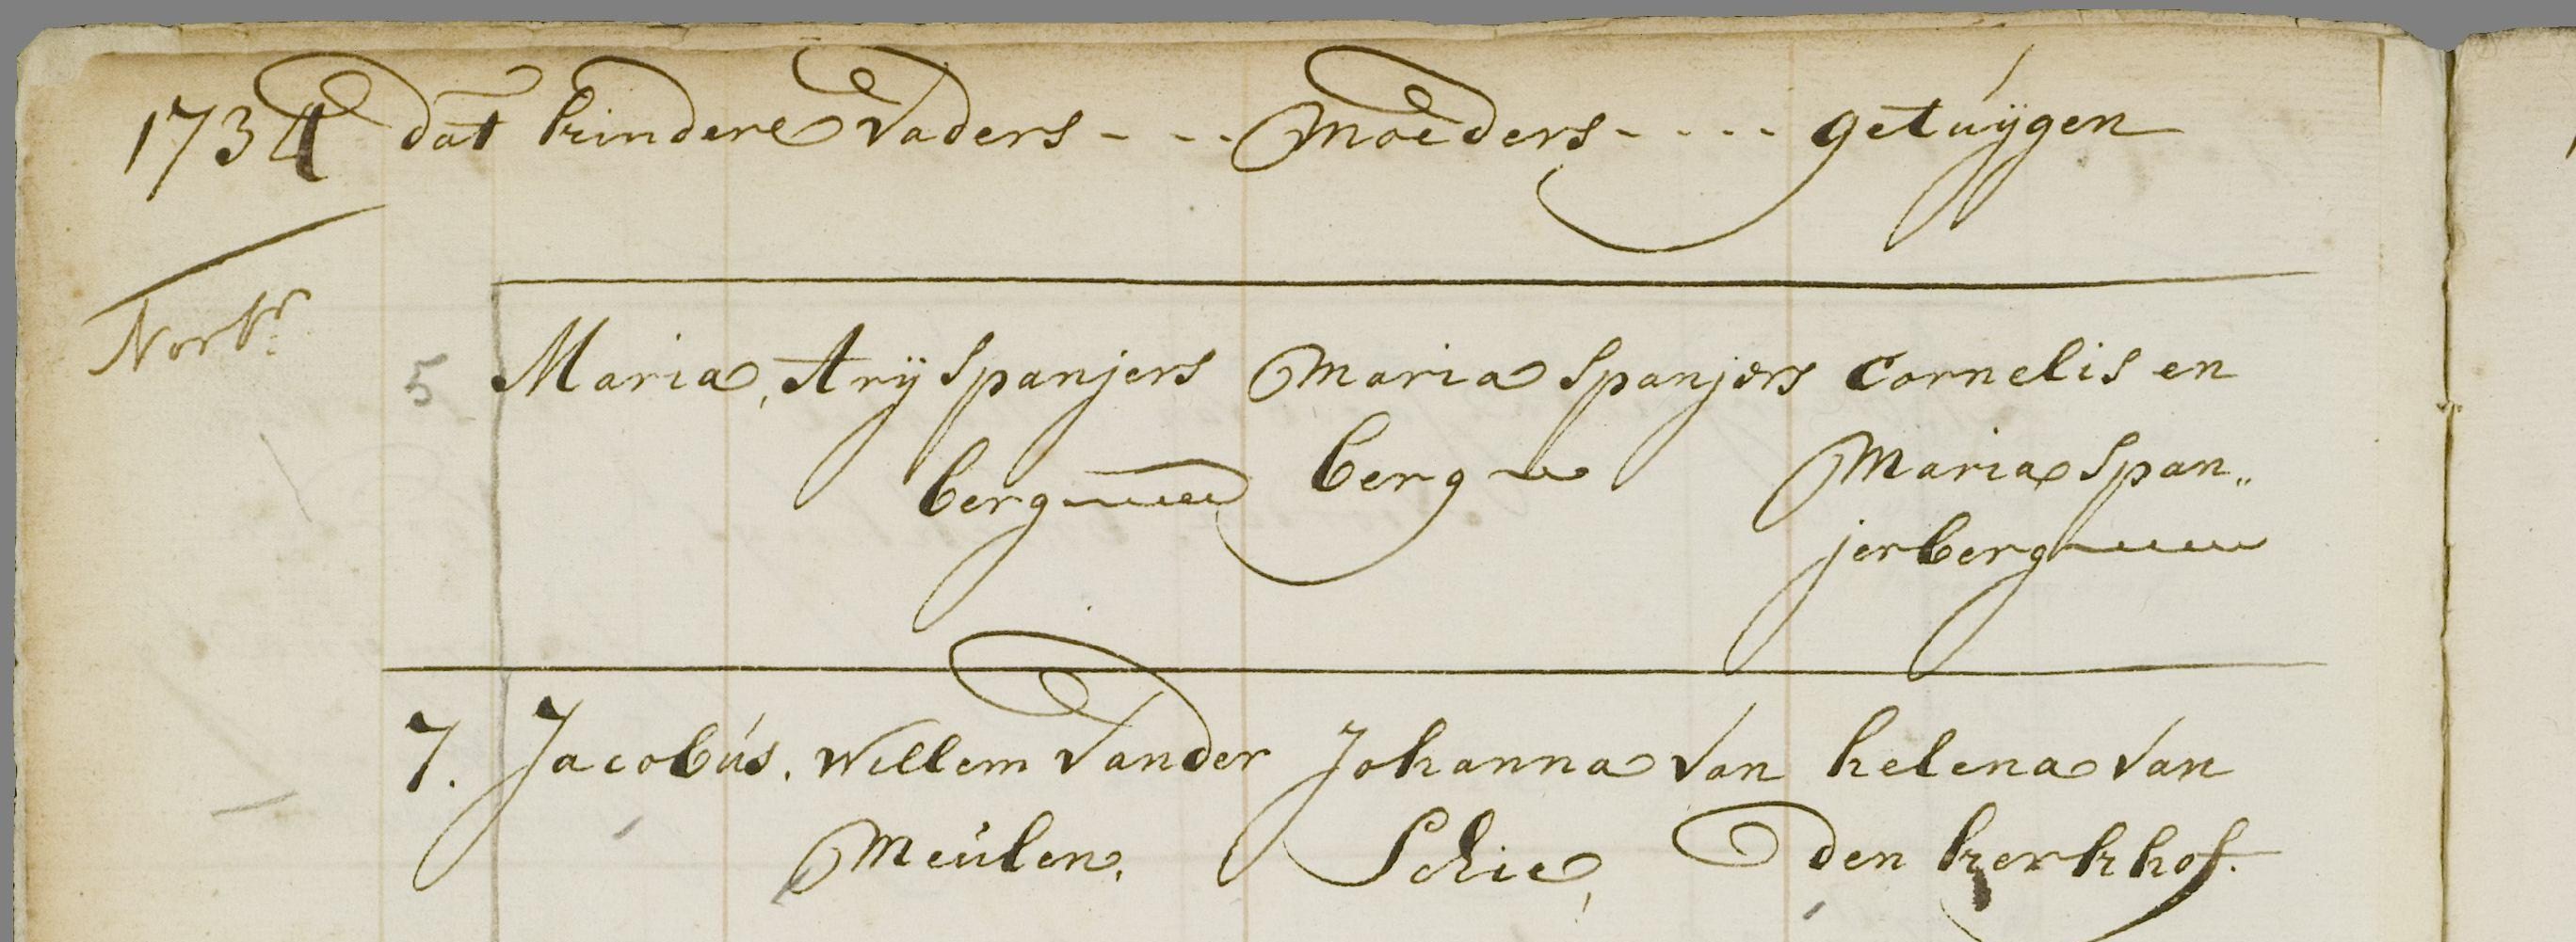 1734 dat kindere Vaders - - - Moeders - - - - getuÿgen
Novbr
5 Maria, Arÿ Spanjers Maria Spanjers Cornelis en
berg berg Maria Span„
jerberg
7. Jacobus. Willem Vander Johanna Van helena Van
Meulen. Schie, den kerkhof.